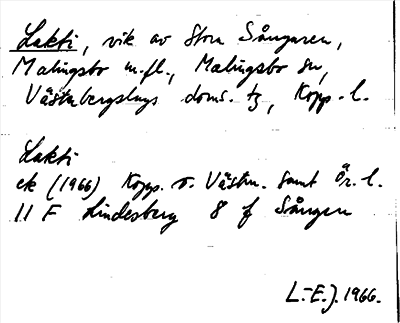 Lakti, vik av Stora Sången,
Malingsbo m.fl., Malingsbo sn,
Västerbergslags doms. tg, Kopp. l.
Lakti
ek (1966) Kopp. o. Västm. samt Ör. l.
11 F Lindesberg 8 f Sången
L.-E.J. 1966.